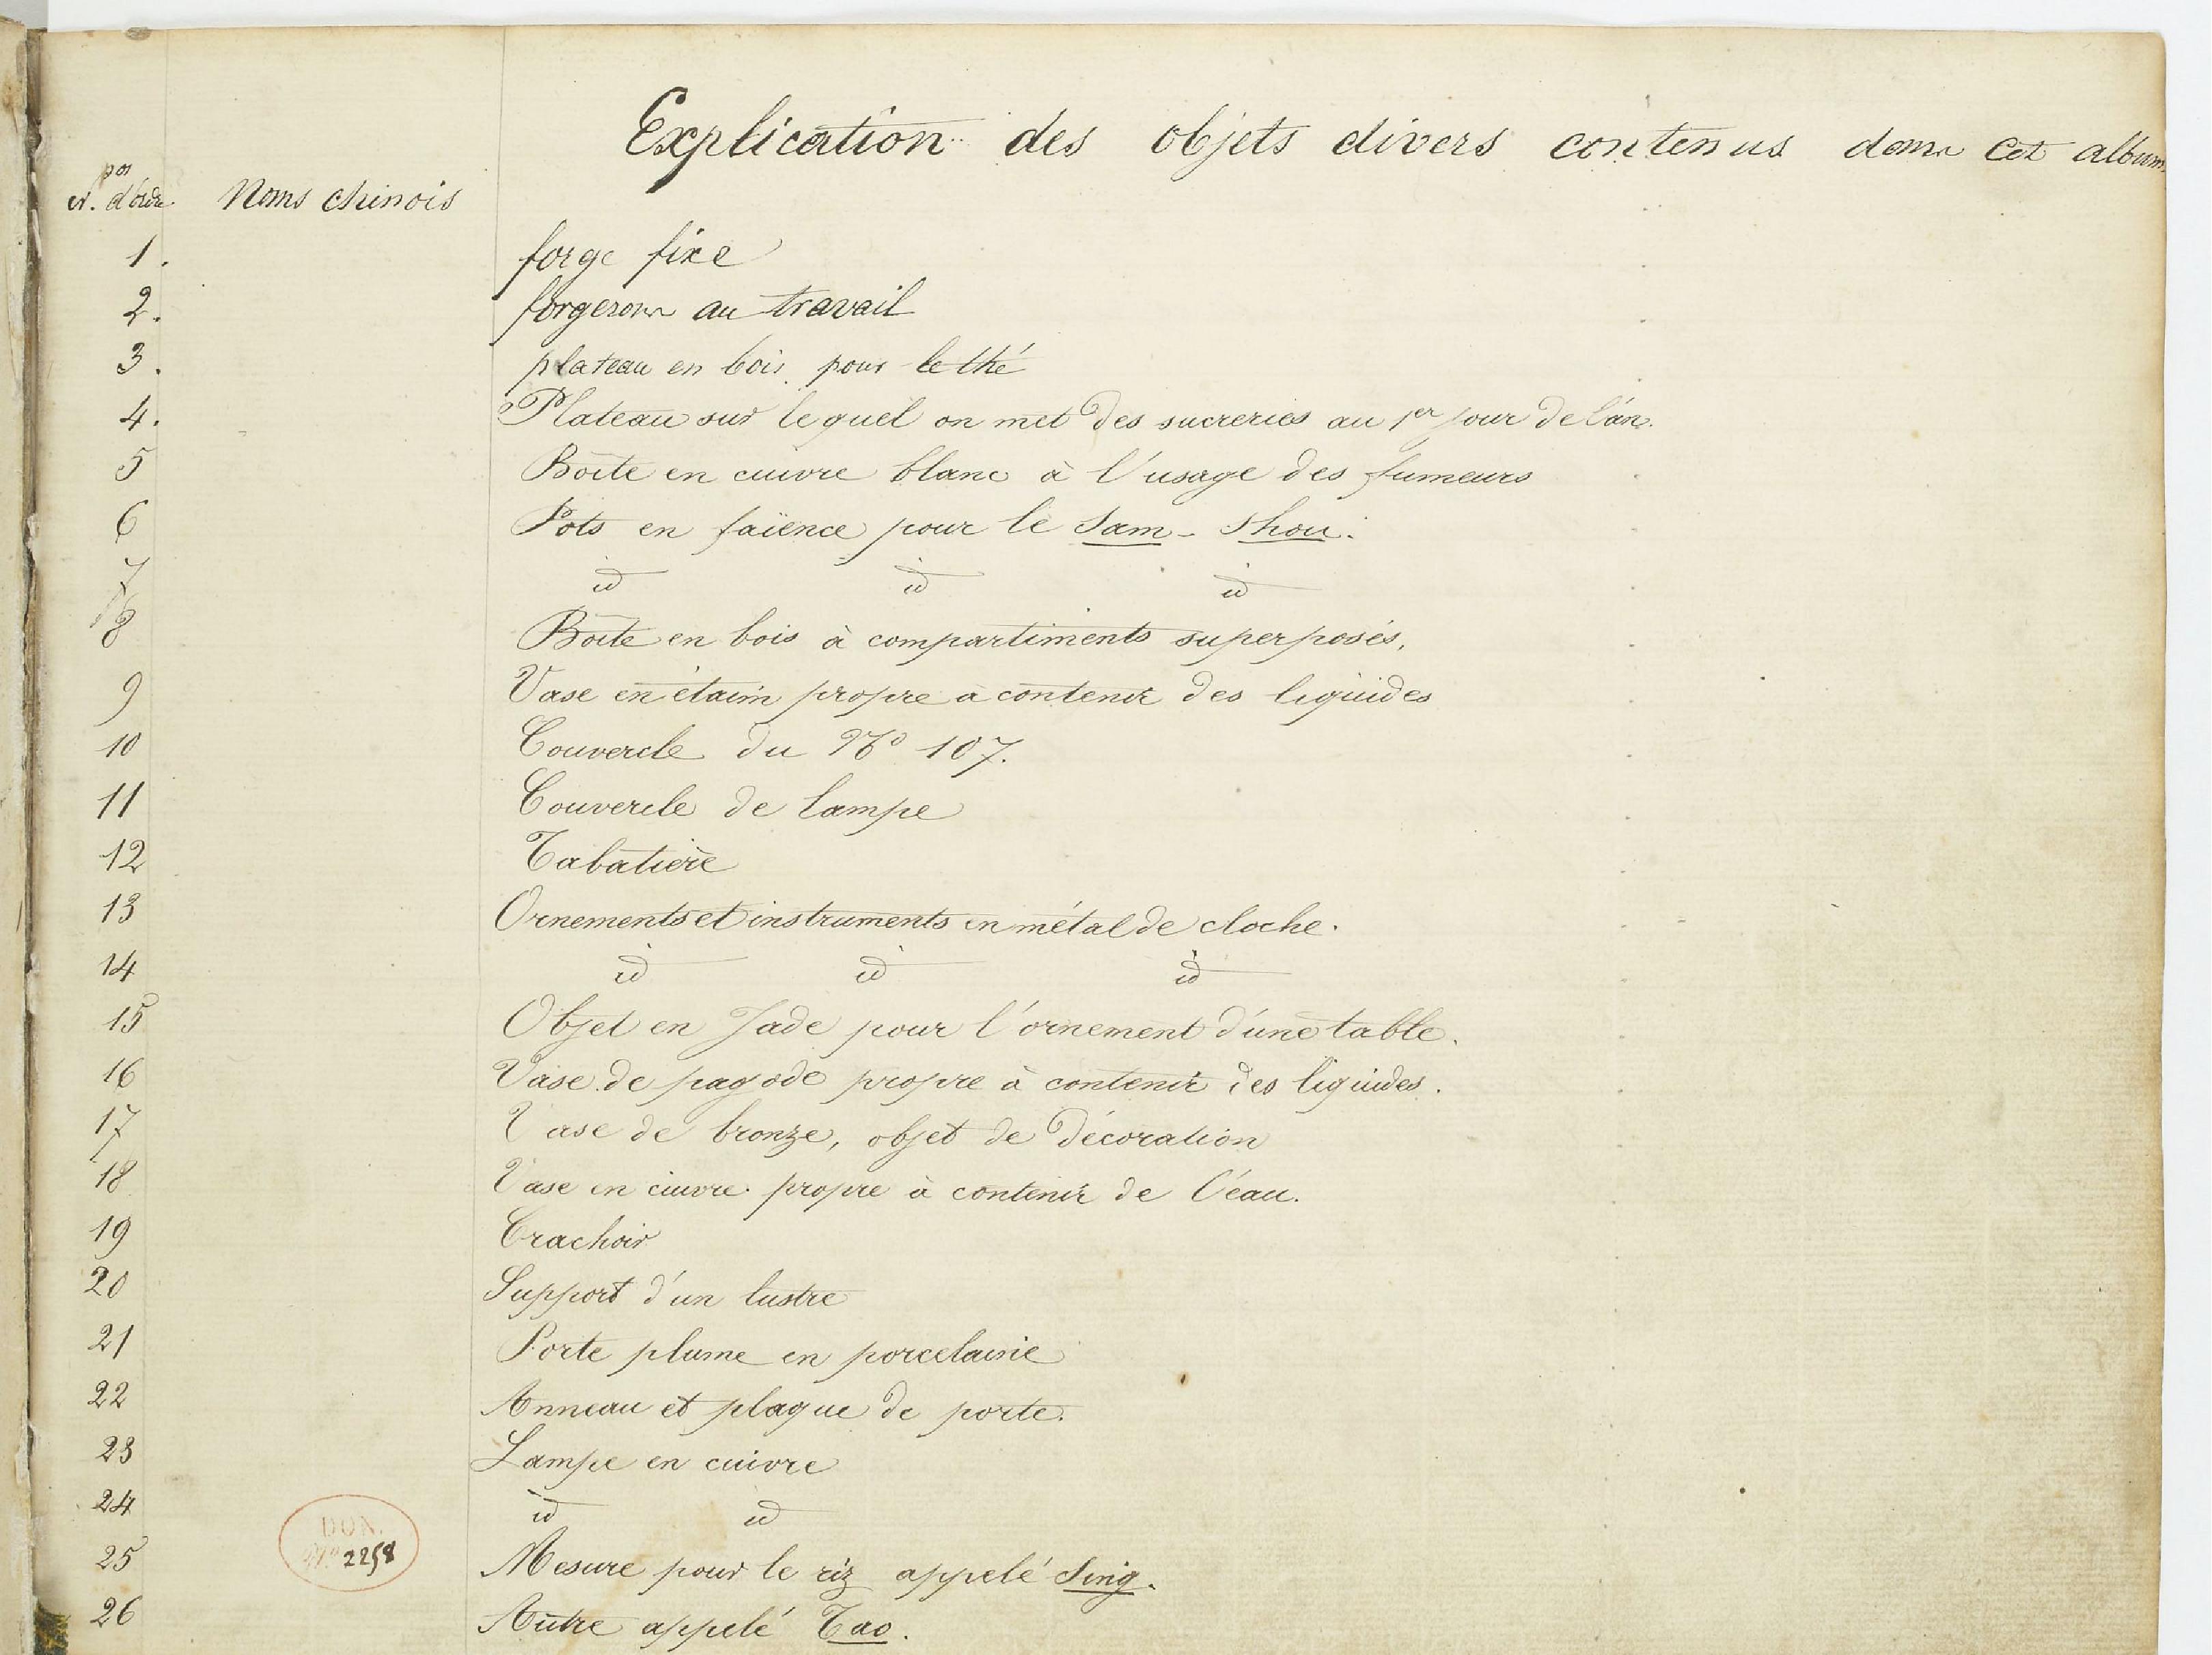 Explication des objets divers contenus dans cet album.
Nos d'ordre. Noms chinois
1. forge fixe
2. forgerons au travail
3. plateau en bois pour le thé
4. Plateau sur lequel on met des sucreries au 1er jour de l'an.
5 Boîte en cuivre blanc à l'usage des fumeurs
6 Pots en faïence pour le Sam-Shou.
7 id id id
8 Boîte en bois à compartiments superposés,
9 Vase en étain propre à contenir des liquides
10 Couvercle du No 107.
11 Couvercle de lampe
12 Tabatière
13 Ornements et instruments en métal de cloche.
14 id id id
15 Objet en Jade pour l'ornement d'une table.
16 Vase de pagode propre à contenir des liquides.
17 Vase de bronze, objet de décoration
18 Vase en cuivre propre à contenir de l'eau.
19 Crachoir
20 Support d'un lustre
21 Porte plume en porcelaine
22 Anneau et plaque de porte.
23 Lampe en cuivre
24 id id
DON.
No 2258
25 Mesure pour le riz appelé Sing.
26 Autre appelé Tao.